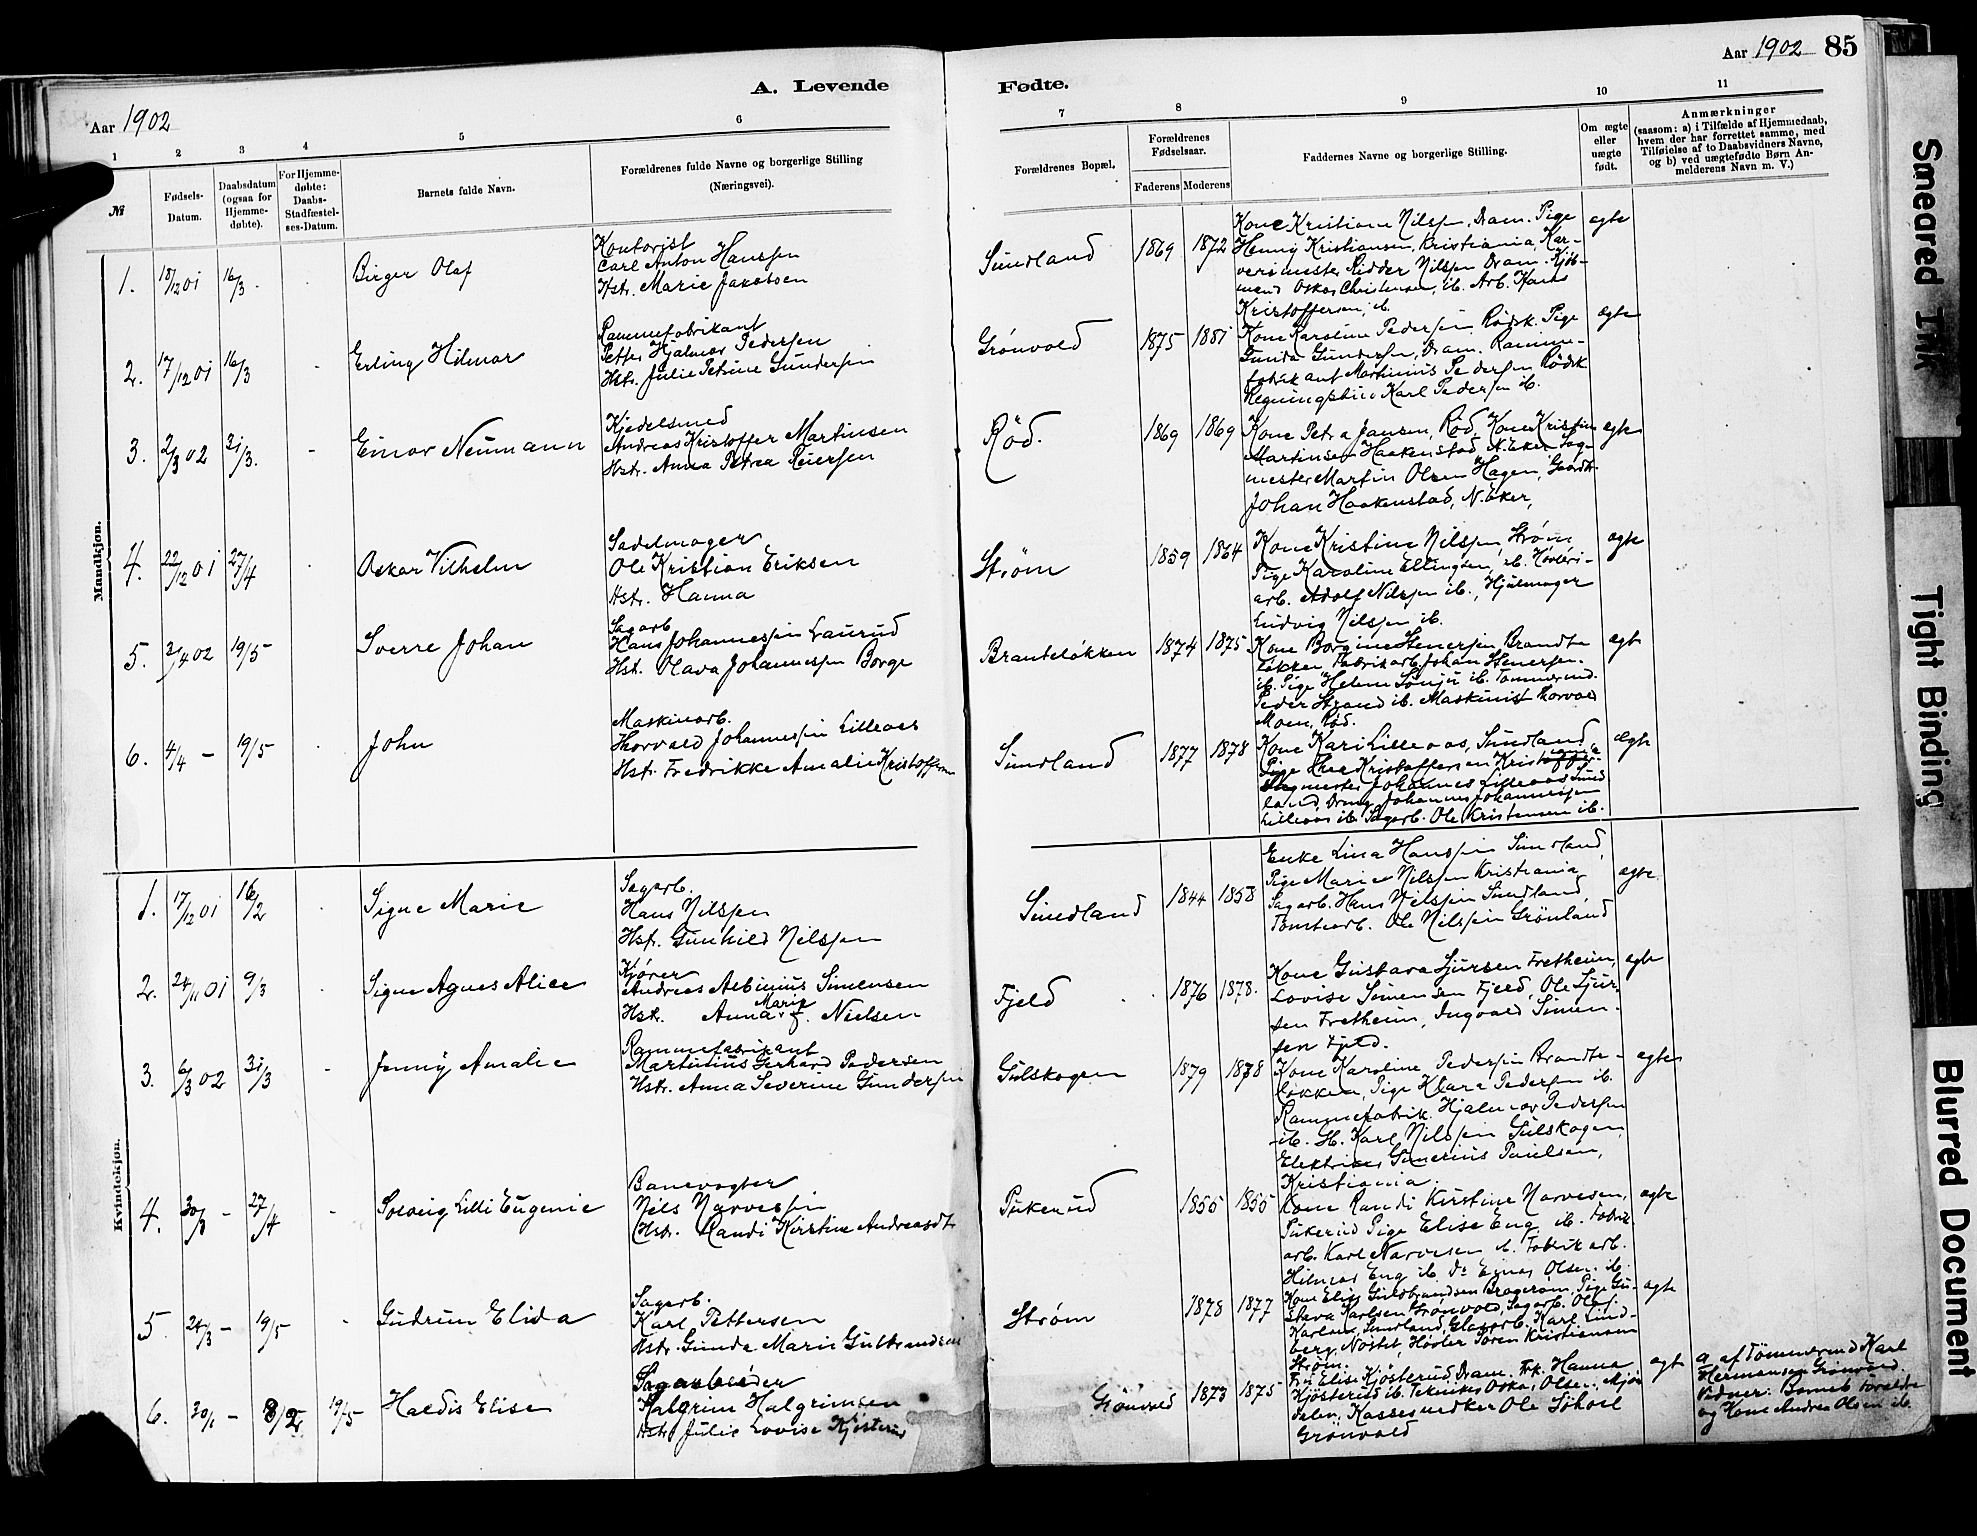 Aar 1902 85
A. Levende Fødte.
Aar 1902
1 2 3 4 5 6 7 8 9 10 11
№
Fødsels-Datum.
Daabsdatum (ogsaa for Hjemme-døbte).
For Hjemme-døbte: Daabs-Stadfæstel-ses-Datum.
Barnets fulde Navn.
Forældrenes fulde Navne og borgerlige Stilling
(Næringsvei).
Forældrenes Bopæl.
Forældrenes Fødselsaar.
Faderens Moderens
Faddernes Navne og borgerlige Stilling.
Om ægte eller uægte født.
Anmærkninger
(saasom: a) i Tilfælde af Hjemmedaab,
hvem der har forrettet samme, med
Tilføielse af to Daabsvidners Navne,
og b) ved uægtefødte Børn An-
melderens Navn m. V.)
Mandkjøn.
1. 18/12 01 16/3 Birger Olaf
Kontorist
Carl Anton Hanssen
Hstr. Marie Jakobsen
Sundland 1869 1872
Kone Kristiane Nilssen, Dram. Pige
Henny Kristiansen, Kristiania,
Ridder Nilssen Dram.
Oskar Christensen, ib. Arb.
Kristoffersen, ib.
ægte
2. 17/12 01 16/3 Erling Hilmar
Rammefabrikant
Petter Hjalmar Pedersen
Hstr. Julie Petrine Gundersen
Grønvold 1875 1881
Kone Karoline Pedersen Rødsk. Pige
Gunda Gundersen, Dram. Ramme-
fabrikant Martinius Pedersen Rødsk
Karl Pedersen ib.
ægte
3. 2/3 02 31/3. Einar Neumann
Kjedelsmed
Andreas Kristoffer Martinsen
Hstr. Anna Petrea Reiersen
Rød. 1869 1869
Kone Petra Jansen, Rød, Kone Kristine
Martinsen Haakenstad, N. Eker Sag-
mester Martin Olsen Hagen, Gaardb.
Johan Haakenstad, N. Eker,
ægte
4. 22/12 01 27/4 Oskar Vilhelm
Sadelmager
Ole Kristian Eriksen
Hstr. Hanna
Strøm 1859 1864
Kone Kristine Nilssen Strøm
Pige Karoline Ellingsen, ib.
arb. Adolf Nilssen ib., Hjulmager
Ludvig Nilssen ib.
ægte
5. 2/4 02 19/5 Sverre Johan
Sagarb.
Hans Johannessen Laurud
Hst. Olava Johannessen Borge
Branteløkken 1874 1875
Kone Borgine Stenersen, Brandte
løkken, Fabrikarb. Johan Stenersen.
ib. Pige Helene ib. Tømmermd.
Peder Strand ib. Maskinist Torvald
Moen, Rød.
ægte
6. 4/4 – 19/5 John
Maskinarb.
Thorvald Johannessen Lilleaas
Hst. Fredrikke Amalie Kristoffersen
Sundland 1877 1878
Kone Kari Lilleaas, Sundland
Pige Kristoffersen
Johannes Lilleaas Sund
land, Johannes Johannessen
Lilleaas ib. Sagarb. Ole Kristensen ib.
Ægte
Kvindekjøn.
1. 17/12 01 16/2 Signe Marie
Sagarb.
Hans Nilssen
Hst. Gunhild Nilssen
Sundland 1844 1858
Enke Lina Hanssen Sundland,
Pige Marie Nilssen Kristiania,
Sagarb. Hans Nilssen Sundland,
Tomtearb. Ole Nilssen Grønland
ægte
2. 24/11 01 9/3 Signe Agnes Alice
Kjører
Andreas Albinius Simensen
Hst. Anna Marie Nielsen
Fjeld 1876 1878.
Kone Gustava Sjursen Fretheim,
Lovise Simensen Fjeld, Ole Sjur-
sen Fretheim, Ingvald Simen-
sen Fjeld.
ægte
3. 6/3 02 31/3 Jenny Amalie
Rammefabrikant
Martinius Gerhard Pedersen
Hstr. Anna Severine Gundersen
Gulskogen 1879 1878
Kone Karoline Pedersen Brandte-
løkken, Pige Klara Pedersen ib.
Rammefabrik. Hjalmar Pedersen
ib. H. Karl Nilssen Gulskogen,
Elektriker Paulsen,
Kristiania.
ægte
4. 30/3 – 27/4 Solveig Lilli Eugenie
Banevogter
Nils Narvesen
Hstr. Randi Kirstine Andreasdt
Pukerud 1855 1855
Kone Randi Kirstine Narvesen,
Pukerud Pige Elise Eng ib. Fabrik
arb. Karl Narvesen ib. Fabrikarb.
Hilmar Eng ib. do Einar Olsen ib.
ægte
5. 24/3 – 19/5 Gudrun Elida
Sagarb.
Karl Pettersen
Hstr. Gunda Marie Gulbrandsen
Strøm 1878 1877
Kone Elise Gulbrandsen Bragerøen, Pige Gu-
stava Karlsen Grønvold, Sagarb. Olaf
Karlsen, Sundland, Glasarb. Karl Lind-
berg, Nøstet, Høvler Søren Kristiansen
Strøm.
ægte
6. 30/1 – 8/2 19/5 Haldis Elise
Sagarbeider
Halgrim Halgrimsen
Hstr. Julie Lovise Kjøsterud
Grønvold 1873 1875
Fru Elise Kjøsterud, Dram. Frk. Hanna
Kjøsterud ib. Tekniker Oskar Olsen, Mjøn
dalen, Kassesnedker Ole Sjøhol
Grønvold
ægte
a. af Tømmermd Karl
Hermansen Grønvold.
Vidner: Barnets Forældre
og Kone Andrea Olsen ib.
Smeared Ink
Tight Binding
Blurred Document